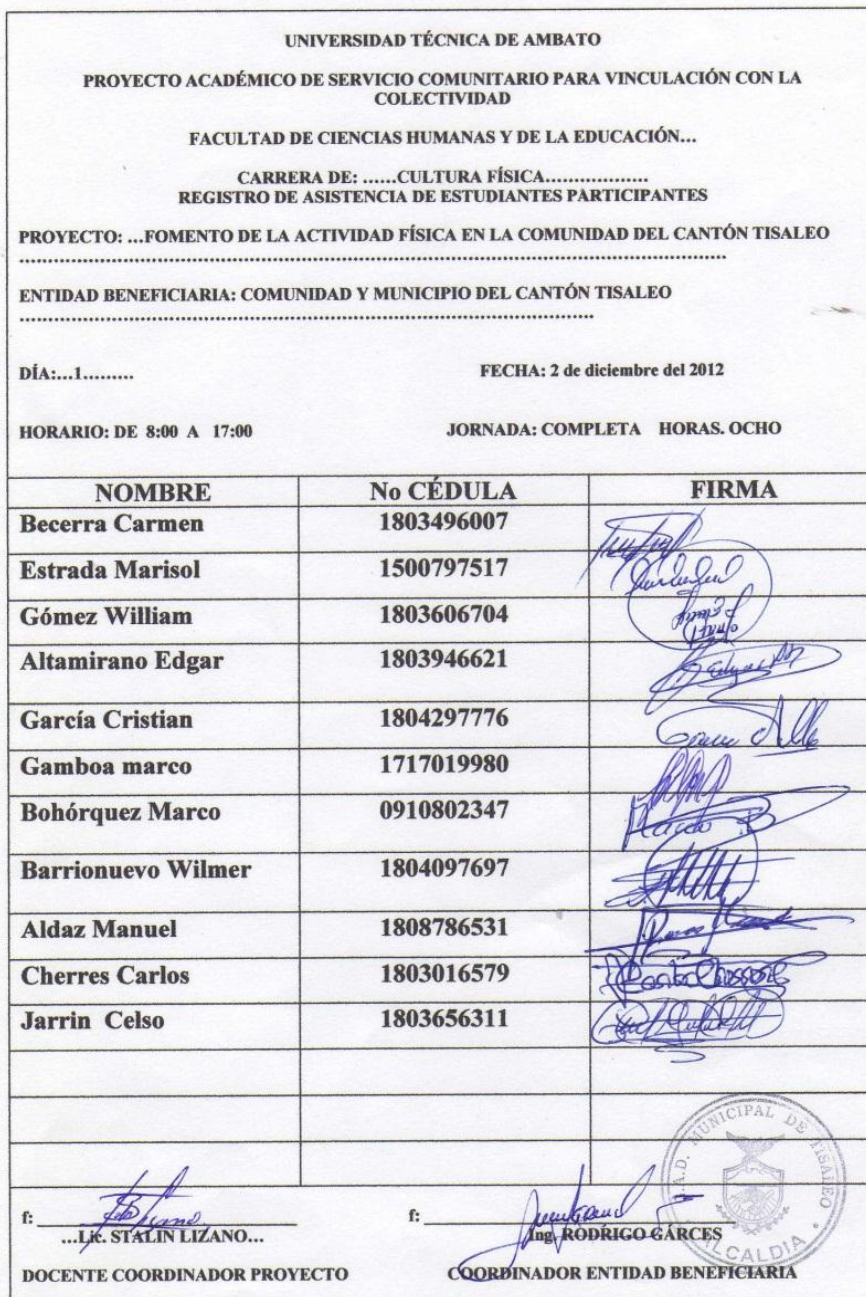 UNIVERSIDAD TÉCNICA DE AMBATO
PROYECTO ACADÉMICO DE SERVICIO COMUNITARIO PARA VINCULACIÓN CON LA
COLECTIVIDAD
FACULTAD DE CIENCIAS HUMANAS Y DE LA EDUCACIÓN...
CARRERA DE: ......CULTURA FÍSICA..................
REGISTRO DE ASISTENCIA DE ESTUDIANTES PARTICIPANTES
PROYECTO: ...FOMENTO DE LA ACTIVIDAD FÍSICA EN LA COMUNIDAD DEL CANTÓN TISALEO
ENTIDAD BENEFICIARIA: COMUNIDAD Y MUNICIPIO DEL CANTÓN TISALEO
DÍA:...1......... FECHA: 2 de diciembre del 2012
HORARIO: DE 8:00 A 17:00 JORNADA: COMPLETA HORAS. OCHO
NOMBRE No CÉDULA FIRMA
Becerra Carmen 1803496007
Estrada Marisol 1500797517
Gómez William 1803606704
Altamirano Edgar 1803946621
García Cristian 1804297776
Gamboa marco 1717019980
Bohórquez Marco 0910802347
Barrionuevo Wilmer 1804097697
Aldaz Manuel 1808786531
Cherres Carlos 1803016579
Jarrin Celso 1803656311
MUNICIPAL DE TISALEO
ALCALDIA
f: f:
...Lic. STALIN LIZANO... Ing. RODRIGO GARCES
DOCENTE COORDINADOR PROYECTO COORDINADOR ENTIDAD BENEFICIARIA